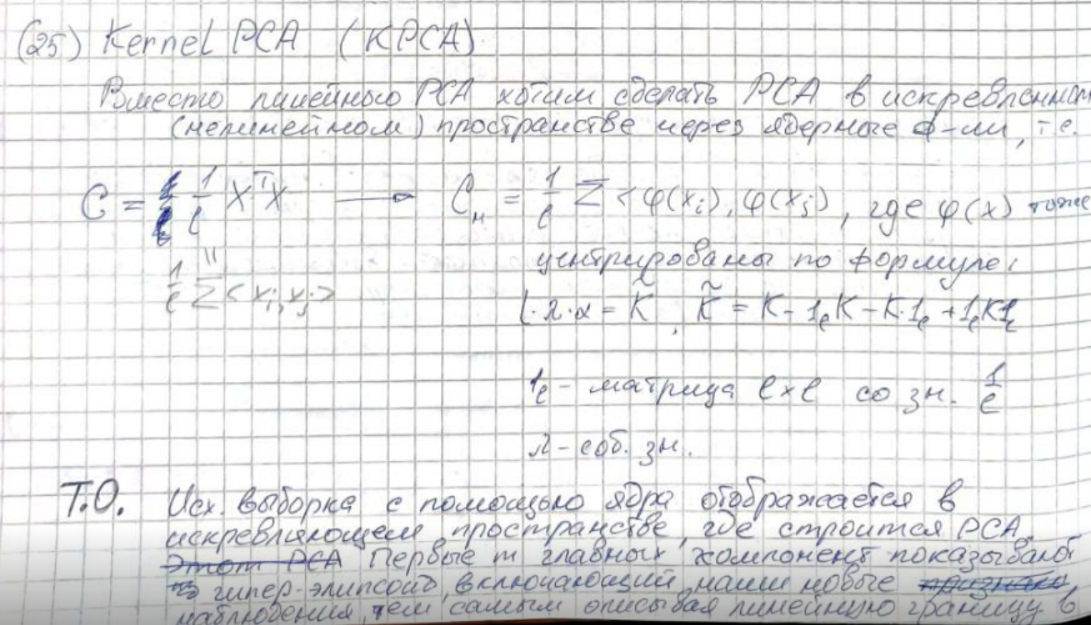 (25) Kernel PCA (KPCA).
Вместо линейного PCA хотим сделать PCA в искревленном
(нелинейном) пространстве через ядерные ф-ли, т.е.
C = 1/l XᵀX → Cₙ = 1/l Σ <φ(xᵢ), φ(xⱼ), где φ(x) тоже
"
1/l Σ <xᵢ, xⱼ>
центрированы по формуле:
l·λ·α = K̃, K̃ = K - 1ₗK - K·1ₗ + 1ₗK1ₗ
1ₗ - матрица l×l со зн. 1/l
λ - соб. зн.
Т.О. Исх. выборка с помощью ядра отображается в
искревляющем пространстве, где строится PCA.
Этот PCA Первые m главных компонент показывают
гипер-элипсоид, включающий наши новые
наблюдения, тем самым описывая линейную границу в